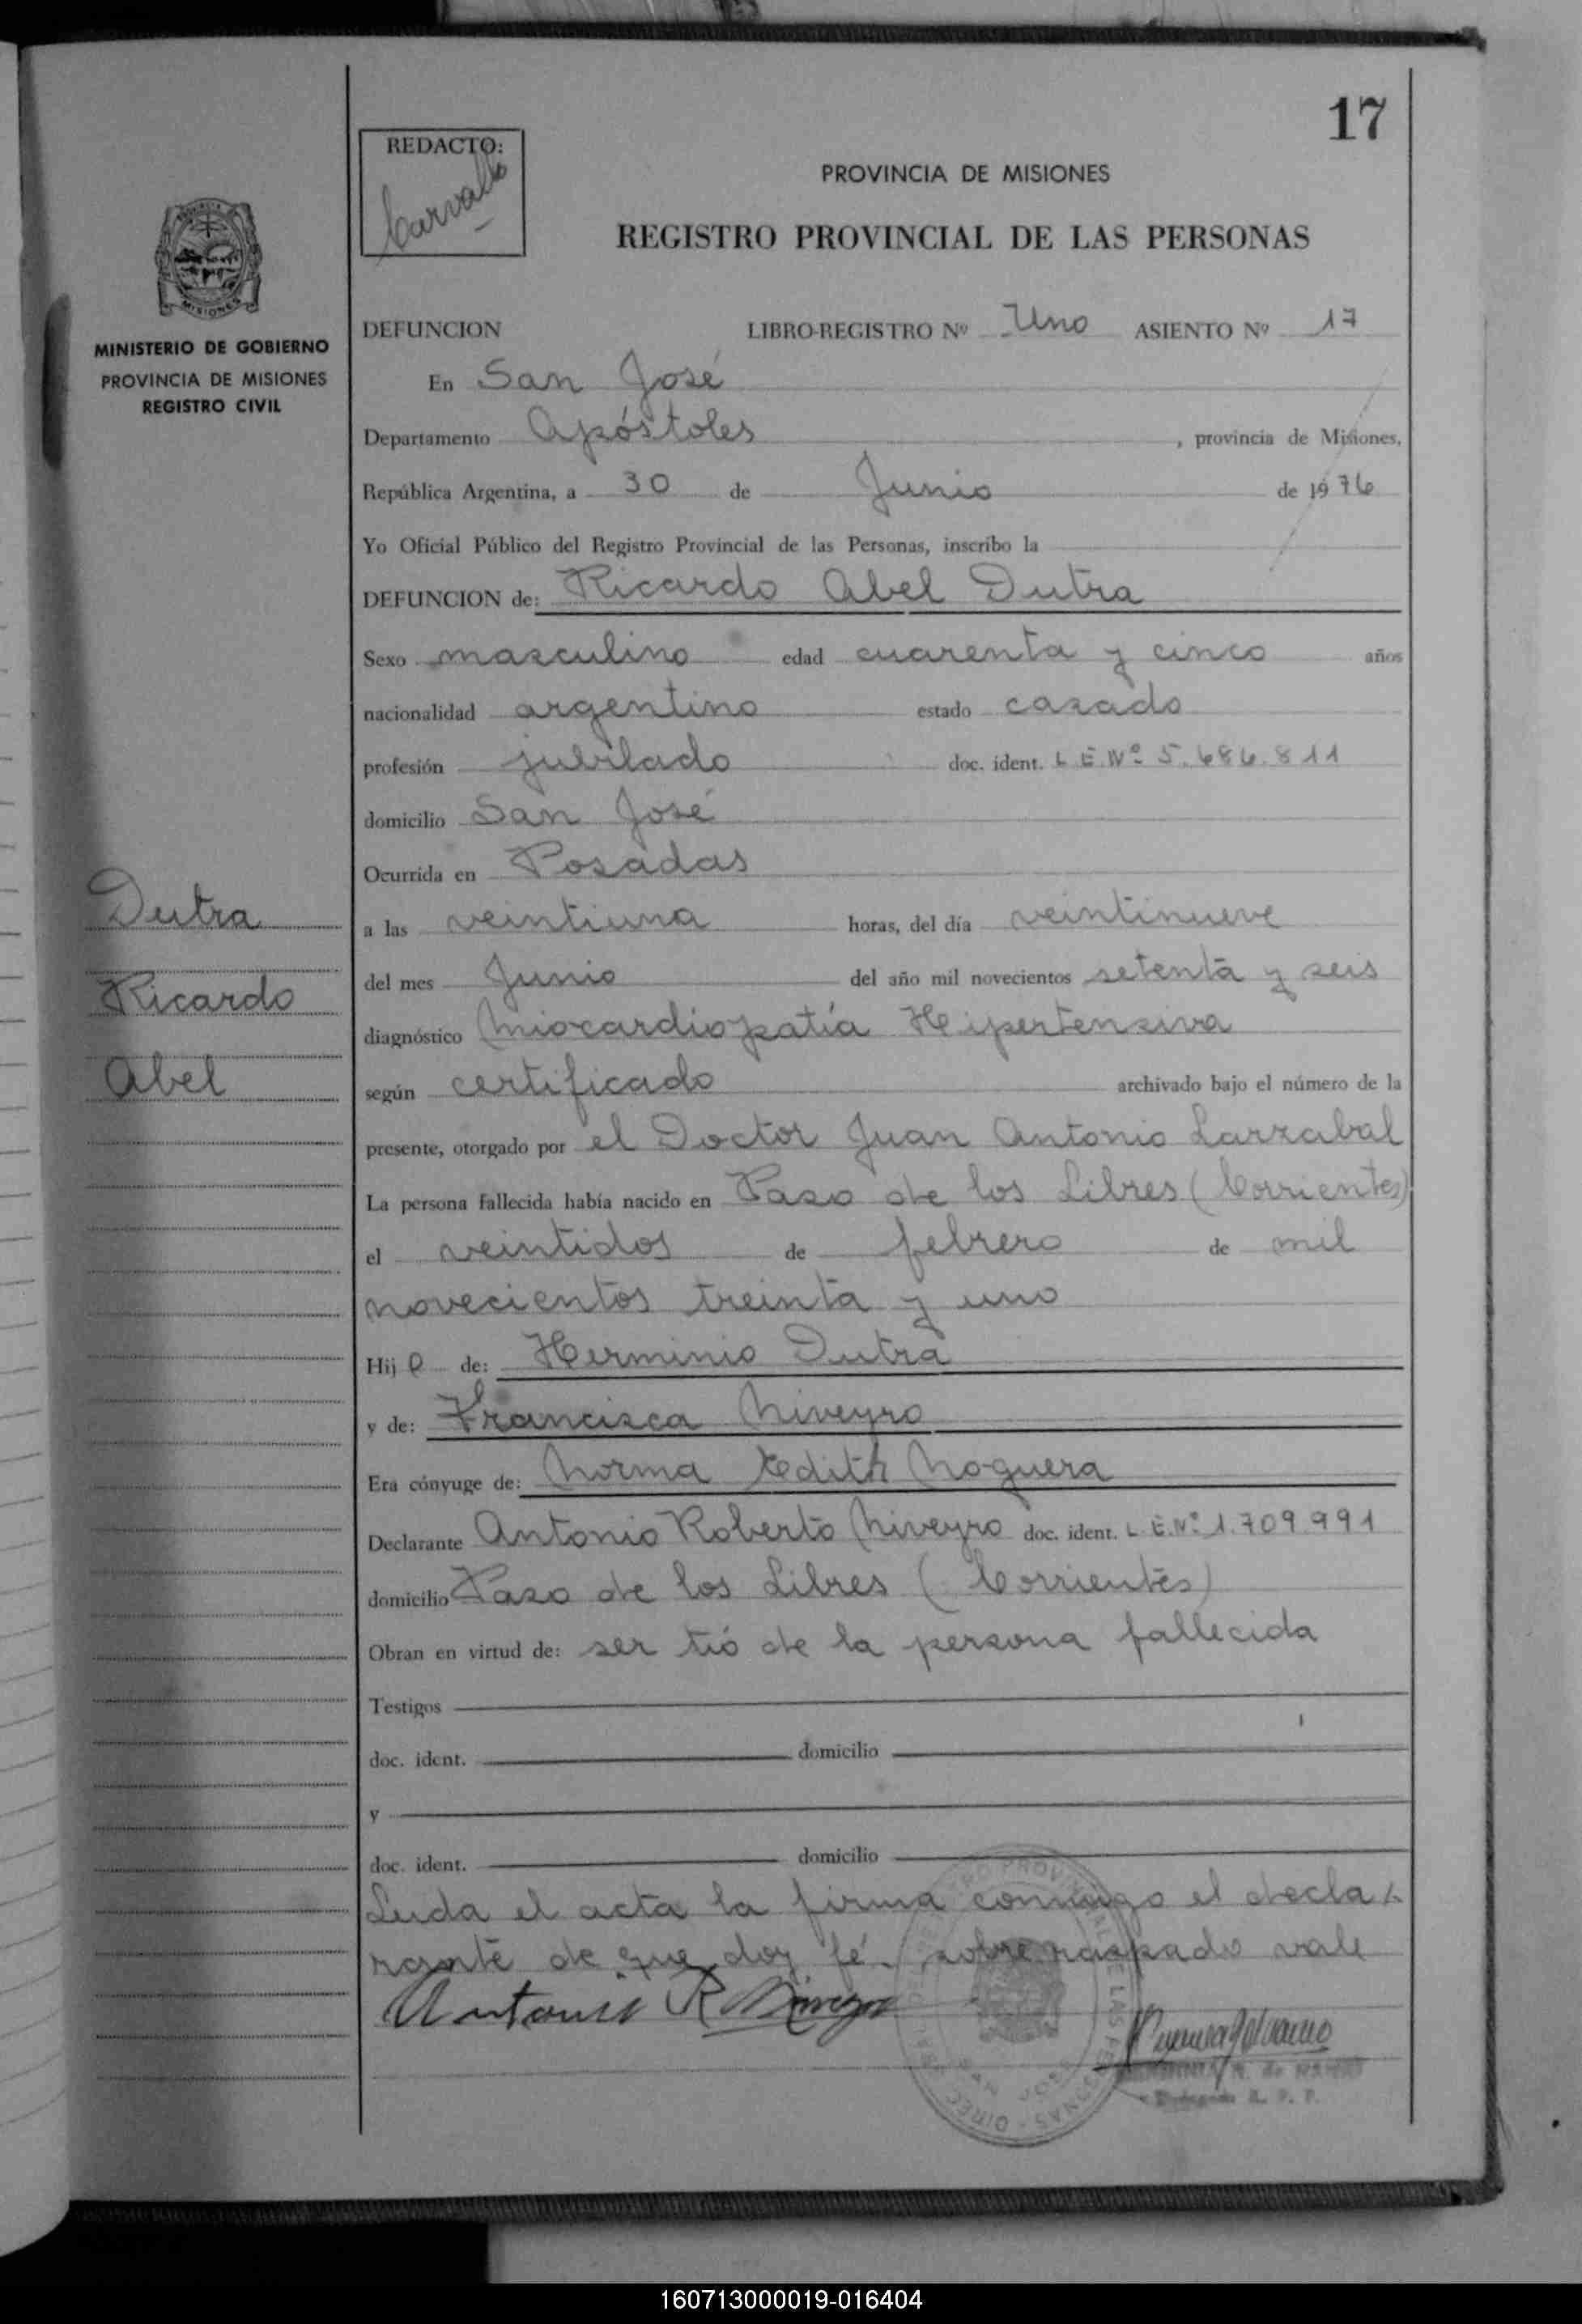 17
REDACTO:
Carvallo
PROVINCIA DE MISIONES
REGISTRO PROVINCIAL DE LAS PERSONAS
MISIONES
MINISTERIO DE GOBIERNO
PROVINCIA DE MISIONES
REGISTRO CIVIL
DEFUNCION LIBRO-REGISTRO Nº Uno ASIENTO Nº 17
En San José
Departamento Apóstoles, provincia de Misiones,
República Argentina, a 30 de Junio de 1976
Yo Oficial Público del Registro Provincial de las Personas, inscribo la
DEFUNCION de: Ricardo Abel Dutra
Sexo masculino edad cuarenta y cinco años
nacionalidad argentino estado casado
profesión jubilado doc. ident. L E Nº 5.686.811
domicilio San José
Ocurrida en Posadas
Dutra
Ricardo
Abel
a las veintiuna horas, del día veintinueve
del mes Junio del año mil novecientos setenta y seis
diagnóstico Miocardiopatía Hipertensiva
según certificado archivado bajo el número de la
presente, otorgado por el Doctor Juan Antonio Larzabal
La persona fallecida había nacido en Paso de los Libres (Corrientes)
el veintidos de febrero de mil
novecientos treinta y uno
Hij o de: Herminio Dutra
y de: Francisca Niveyro
Era cónyuge de: Norma Edith Noguera
Declarante Antonio Roberto Niveyro doc. ident. L.E.Nº 1.709.991
domicilio Paso de los Libres (Corrientes)
Obran en virtud de: ser tió de la persona fallecida
Testigos
doc. ident. domicilio
y
doc. ident. domicilio
Leida el acta la firma conmigo el decla
rante de que doy fé. sobre raspado vale
Antonio R Niveyro
SAN JOSE
160713000019-016404